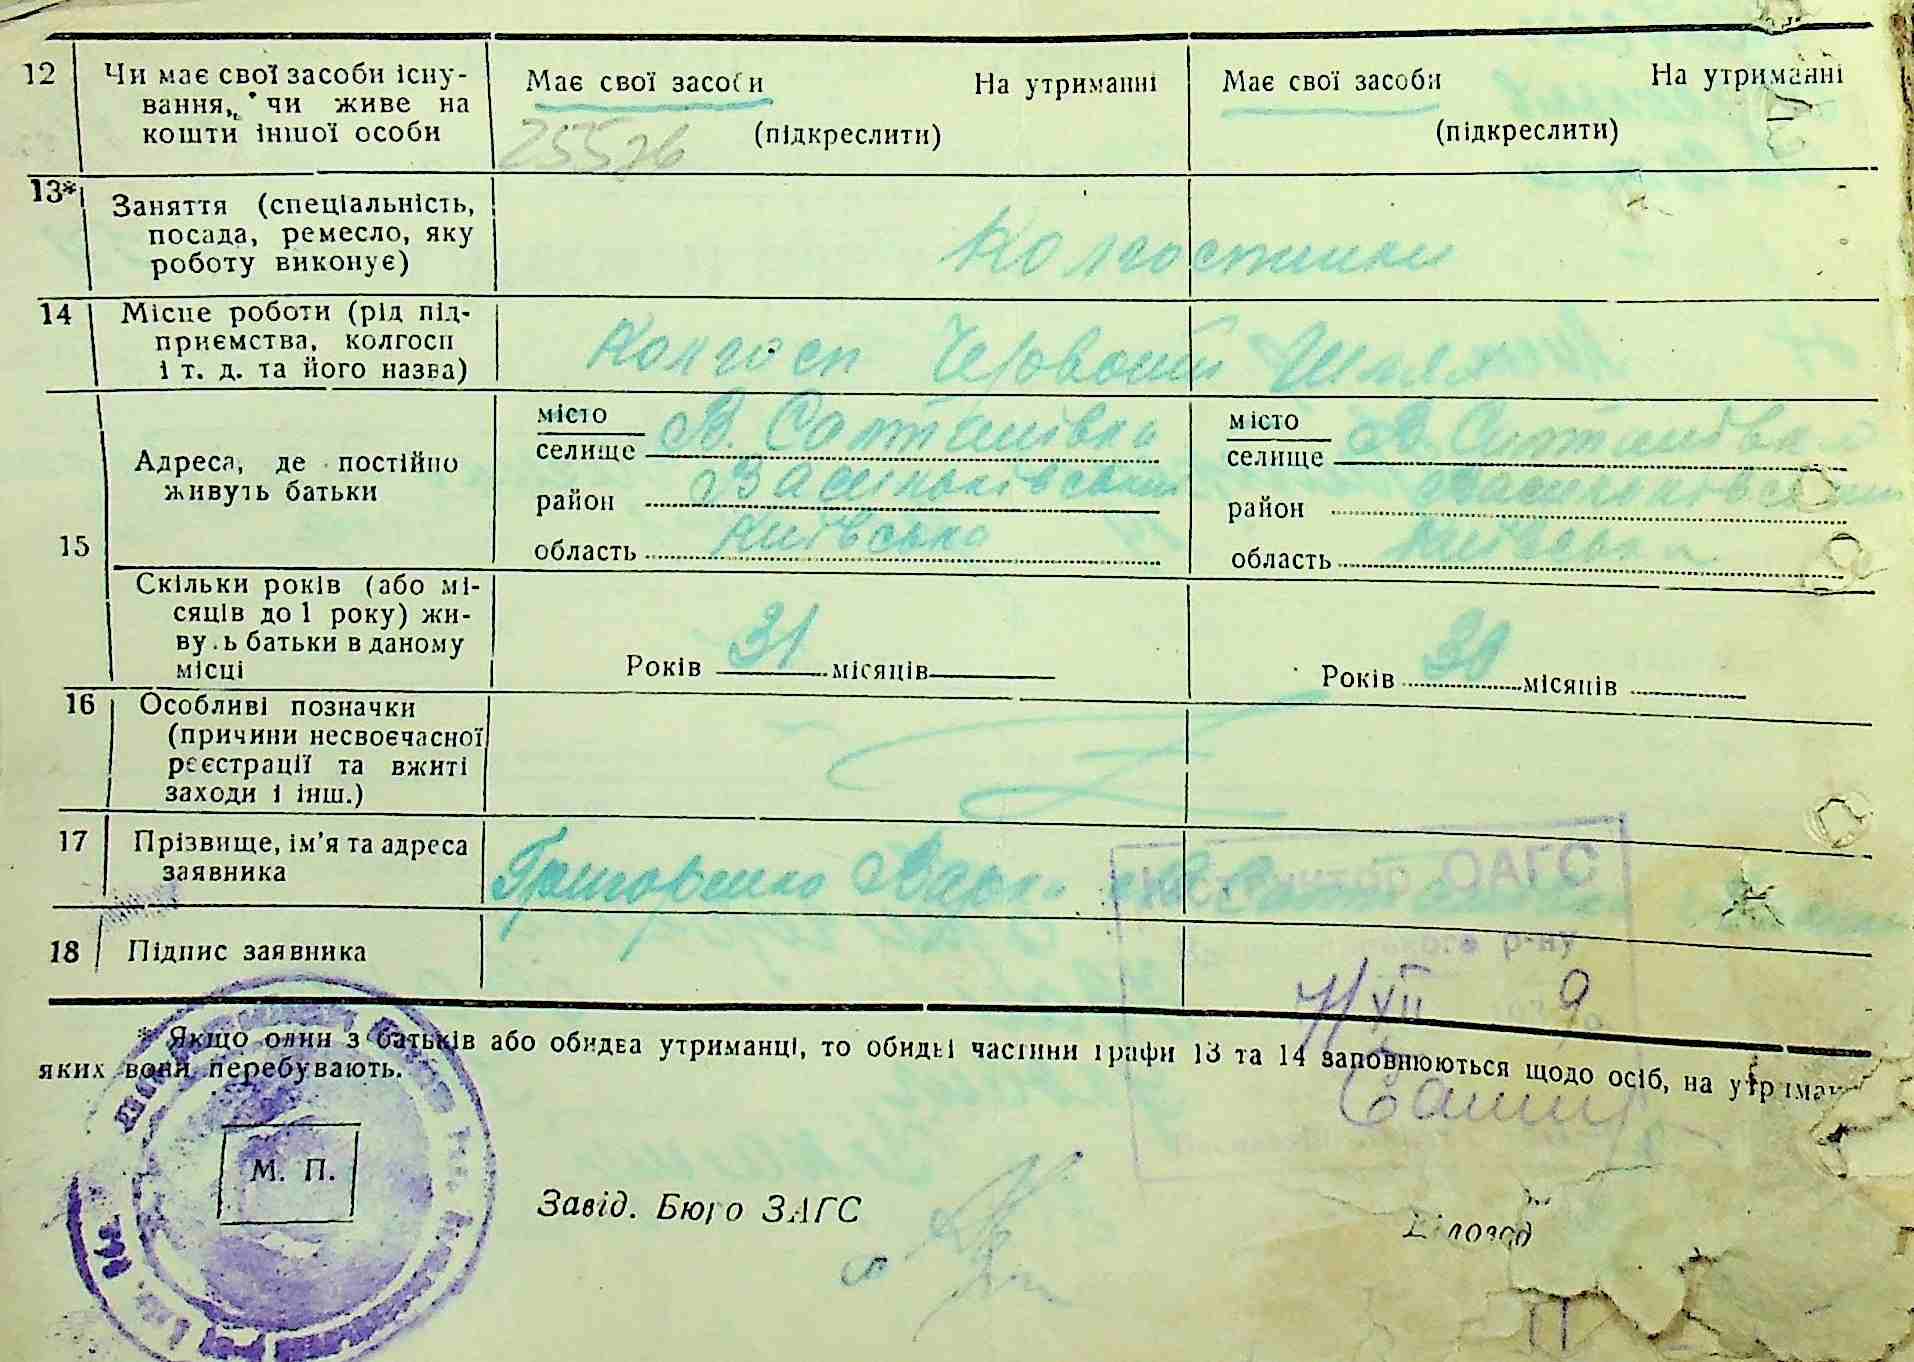 12 Чи має свої засоби існу-
вання, чи живе на
кошти іншої особи
Має свої засоби На утриманні
(підкреслити)
25526
Має свої засоби На утриманні
(підкреслити)
13* Заняття (спеціальність,
посада, ремесло, яку
роботу виконує)
Колгоспники
14 Місце роботи (рід під-
приємства, колгосп
і т. д. та його назва)
Колгосп Червоний Шлях
15 Адреса, де постійно
живуть батьки
місто
селище В. Солтанівка
район Васильківський
область Київська
місто
селище В. Солтанівка
район Васильковский
область Київська
Скільки років (або мі-
сяців до 1 року) жи-
вуть батьки в даному
місці
Років 31 місяців
Років 30 місяців
16 Особливі позначки
(причини несвоєчасної
реєстрації та вжиті
заходи і інш.)
17 Прізвище, ім'я та адреса
заявника
Григоренко Варка
Інспектор ОАГС
р-ну
18 Підпис заявника
11/XII 9
* Якщо один з батьків або обидва утриманці, то обидві частини графи 13 та 14 заповнюються щодо осіб, на утриман
яких вони перебувають.
М. П.
Завід. Бюро ЗАГС
Діловод